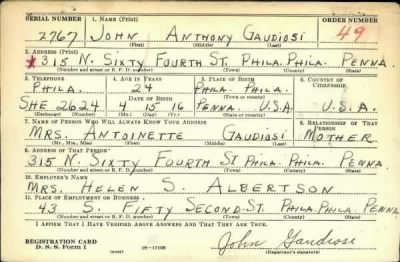 SERIAL NUMBER 1. NAME (Print) ORDER NUMBER
2767 JOHN ANTHONY GAUDIOSI 49
(First) (Middle) (Last)
2. ADDRESS (Print)
*315 N. SIXTY FOURTH ST. PHILA. PHILA. PENNA.
(Number and street or R. F. D. number) (Town) (County) (State)
3. TELEPHONE 4. AGE IN YEARS 5. PLACE OF BIRTH 6. COUNTRY OF CITIZENSHIP
PHILA. 24 PHILA. PHILA.
(Town) (County)
DATE OF BIRTH
SHE 2624 4 15 16 PENNA. U.S.A. U.S.A.
(Exchange) (Number) (Mo.) (Day) (Yr.) (State or country)
7. NAME OF PERSON WHO WILL ALWAYS KNOW YOUR ADDRESS 8. RELATIONSHIP OF THAT PERSON
MRS. ANTOINETTE GAUDIOSI MOTHER
(Mr., Mrs., Miss) (First) (Middle) (Last)
9. ADDRESS OF THAT PERSON
315 N. SIXTY FOURTH ST. PHILA. PHILA. PENNA
(Number and street or R. F. D. number) (Town) (County) (State)
10. EMPLOYER'S NAME
MRS. HELEN S. ALBERTSON
11. PLACE OF EMPLOYMENT OR BUSINESS
43 S. FIFTY SECOND ST. PHILA. PHILA. PENNA
(Number and street or R. F. D. number) (Town) (County) (State)
I AFFIRM THAT I HAVE VERIFIED ABOVE ANSWERS AND THAT THEY ARE TRUE.
REGISTRATION CARD
D. S. S. Form 1 (over) 16—17105 John Gaudiosi
(Registrant's signature)